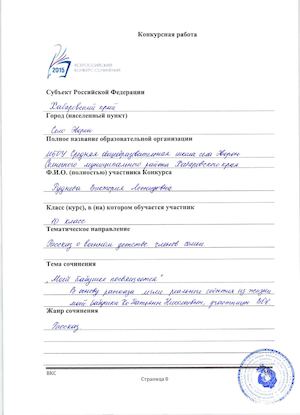 Конкурсная работа
2015
ВСЕРОССИЙСКИЙ
КОНКУРС СОЧИНЕНИЙ
Субъект Российской Федерации
Хабаровский край
Город (населенный пункт)
Село Эворон
Полное название образовательной организации
МБОУ Средняя общеобразовательная школа села Эворон
Солнечного муниципального района Хабаровского края
Ф.И.О. (полностью) участника Конкурса
Руднева Виктория Леонидовна
Класс (курс), в (на) котором обучается участник
10 класс
Тематическое направление
Рассказ о военном детстве членов семьи.
Тема сочинения
„Моей бабушке посвящается"
В основу рассказа легли реальные события из жизни
моей бабушки Татьяны Николаевны, участницы ВОВ
Жанр сочинения
Рассказ
ВКС
Страница 0